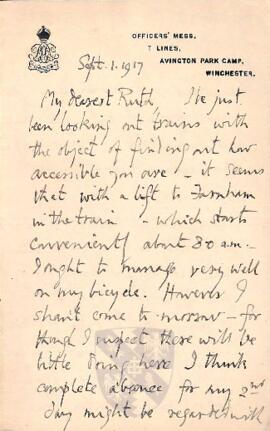 OFFICERS' MESS,
T LINES,
AVINGTON PARK CAMP,
WINCHESTER.
Sept. 1. 1917
My dearest Ruth, I've just
been looking out trains with
the object of finding out how
accessible you are - it seems
that with a lift to Farnham
in the train - which starts
conveniently about 8.0 a.m. -
I ought to manage very well
on my bicycle. However I
shan't come to-morrow - for
though I suspect there will be
little doing here I think
complete absence for my 2nd
day might be regarded with